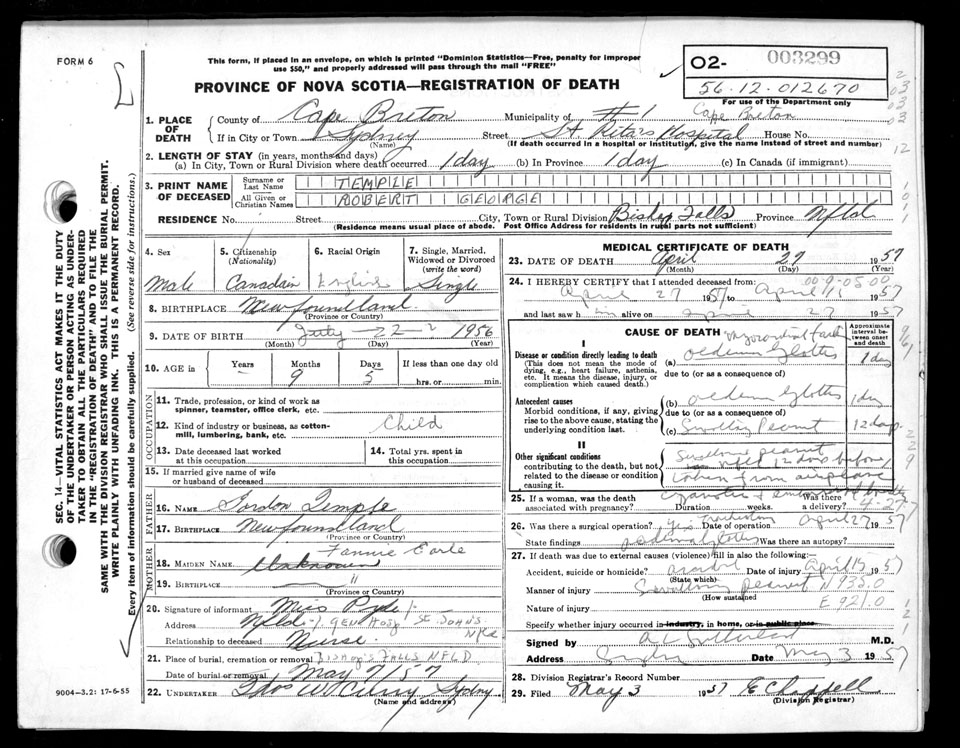 FORM 6
This form, if placed in an envelope, on which is printed "Dominion Statistics—Free, penalty for improper
use $50," and properly addressed will pass through the mail "FREE"
PROVINCE OF NOVA SCOTIA—REGISTRATION OF DEATH
O2- 003299
56.12.012670
For use of the Department only
Cape Breton
1. PLACE OF DEATH
County of Cape Breton Municipality of #1
If in City or Town Sydney Street St Rita's Hospital House No.
(Name) (If death occurred in a hospital or institution, give the name instead of street and number)
2. LENGTH OF STAY (in years, months and days)
(a) In City, Town or Rural Division where death occurred 1 day (b) In Province 1 day (c) In Canada (if immigrant)
3. PRINT NAME OF DECEASED
Surname or Last Name TEMPLE
All Given or Christian Names ROBERT GEORGE
RESIDENCE No. Street City, Town or Rural Division Bishop Falls Province Nfld
(Residence means usual place of abode. Post Office Address for residents in rural parts not sufficient)
4. Sex Male
5. Citizenship (Nationality) Canadain
6. Racial Origin English
7. Single, Married, Widowed or Divorced (write the word) Single
8. BIRTHPLACE Newfoundland
(Province or Country)
9. DATE OF BIRTH July 22 1956
(Month) (Day) (Year)
10. AGE in Years Months 9 Days 5 If less than one day old
hrs. or min.
OCCUPATION
11. Trade, profession, or kind of work as
spinner, teamster, office clerk, etc.
12. Kind of industry or business, as cotton-
mill, lumbering, bank, etc. Child
13. Date deceased last worked
at this occupation
14. Total yrs. spent in
this occupation
15. If married give name of wife
or husband of deceased
FATHER
16. NAME Gordon Temple
17. BIRTHPLACE Newfoundland
(Province or Country)
MOTHER
Fannie Earle
18. MAIDEN NAME Unknown
19. BIRTHPLACE "
(Province or Country)
20. Signature of informant Miss Pyde
Address Nfld. GEN HOSP ST. JOHNS Nfld
Relationship to deceased Nurse.
21. Place of burial, cremation or removal BISHOP'S FALLS NFLD.
Date of burial or removal May 7/57
22. UNDERTAKER Thos W Curry Sydney
(Name and address)
MEDICAL CERTIFICATE OF DEATH
23. DATE OF DEATH April 27 1957
(Month) (Day) (Year)
24. I HEREBY CERTIFY that I attended deceased from:
April 27 1957 to April 1957
and last saw him alive on April 27 1957
CAUSE OF DEATH
Approximate interval between onset and death
I
Disease or condition directly leading to death
(This does not mean the mode of
dying, e.g., heart failure, asthenia,
etc. It means the disease, injury, or
complication which caused death.)
(a) oedema glottis 1 day
due to (or as a consequence of)
Antecedent causes
Morbid conditions, if any, giving
rise to the above cause, stating the
underlying condition last.
(b) oedema glottis 1 day
due to (or as a consequence of)
(c) Swallowing Peanut 12 days
II
Other significant conditions
contributing to the death, but not
related to the disease or condition
causing it.
Swallowed peanut
Nfld 12 days before
taken from airplane
25. If a woman, was the death
associated with pregnancy? Duration weeks. Was there a delivery?
26. Was there a surgical operation? yes Date of operation April 27 1957
State findings Was there an autopsy?
27. If death was due to external causes (violence) fill in also the following:
Accident, suicide or homicide? Date of injury April 15 1957
(State which)
Manner of injury Swallowing peanut N 933.0
(How sustained)
Nature of injury E 921.0
Specify whether injury occurred in industry, in home, or in public place
Signed by M.D.
Address Sydney Date May 3 1957
28. Division Registrar's Record Number
29. Filed May 3 1957 E Chappell
(Division Registrar)
SEC. 14—VITAL STATISTICS ACT MAKES IT THE DUTY
OF THE UNDERTAKER OR PERSON ACTING AS UNDER-
TAKER TO OBTAIN ALL THE PARTICULARS REQUIRED
IN THE "REGISTRATION OF DEATH" AND TO FILE THE
SAME WITH THE DIVISION REGISTRAR WHO SHALL ISSUE THE BURIAL PERMIT.
WRITE PLAINLY WITH UNFADING INK. THIS IS A PERMANENT RECORD.
Every item of information should be carefully supplied. (See reverse side for instructions.)
9004—3.2: 17-6-55